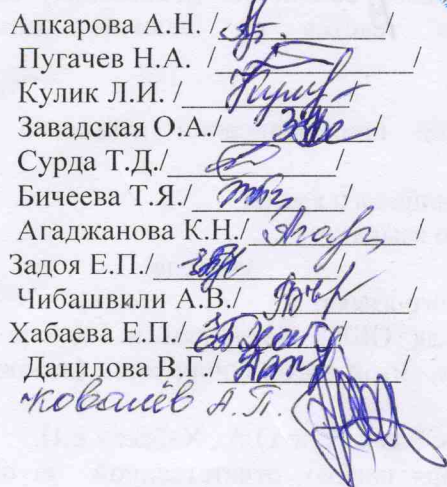 Апкарова А.Н. /
Пугачев Н.А. / /
Кулик Л.И. / /
Завадская О.А./ /
Сурда Т.Д./ /
Бичеева Т.Я./ /
Агаджанова К.Н./ /
Задоя Е.П./ /
Чибашвили А.В./ /
Хабаева Е.П. /
Данилова В.Г. /
Ковалёв А.П.